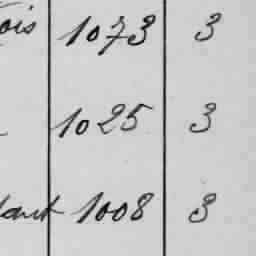 ois 1073 3
1025 3
tant 1008 3